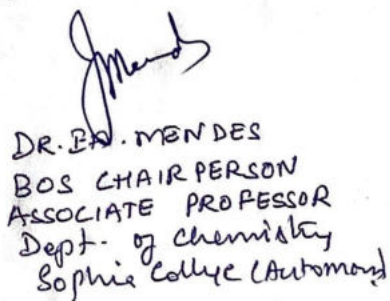 DR. EA. MENDES
BOS CHAIRPERSON
ASSOCIATE PROFESSOR
Dept. of Chemistry
Sophia College (Autonomous)